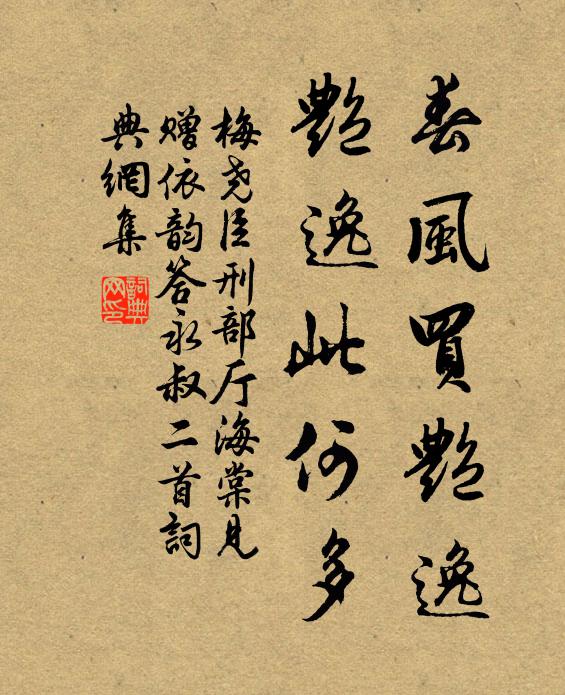 春風買艷逸
艷逸此何多
梅尧臣刑部厅海棠見
赠依韵答永叔二首詞
典網集
詞典网印